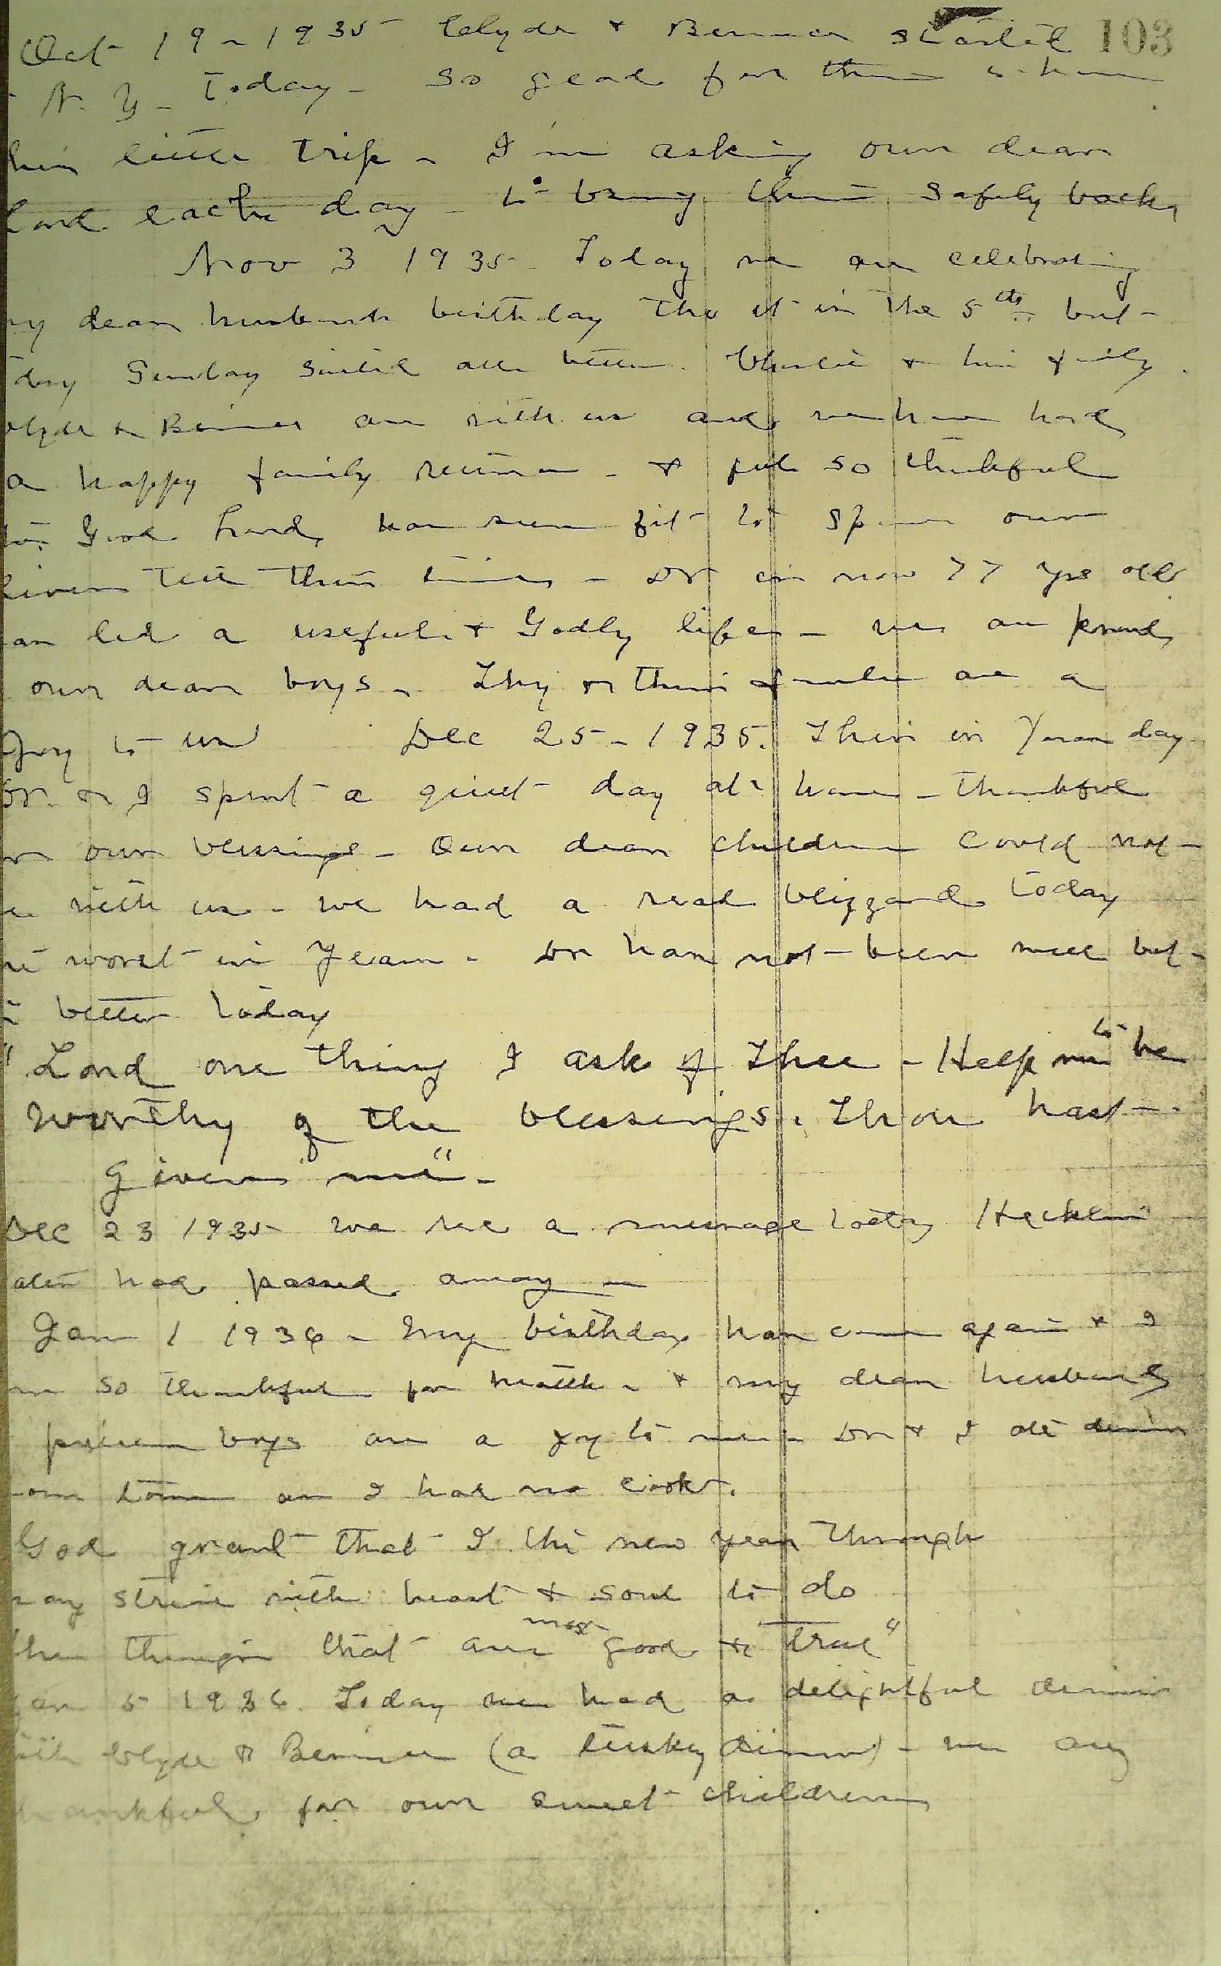 103
Oct 19 - 1935 Clyde & Bernice started
N. Y - today - So glad for them to have
this little trip - I'm asking our dear
Lord each day - to bring them safely back,
Nov 3 1935 - Today we are celebrating
my dear husbands birthday tho it is the 5th but -
day Sunday suited all better. Charlie & his family.
Clyde & Bernice are with us and we have had
a happy family reunion - & feel so thankful
Good Lord, has seen fit to spare our
lives till this time - Dr is now 77 yrs old
has led a useful & Godly life - we are proud
our dear boys - They & their families are a
Joy to us Dec 25 - 1935. This is Xmas day
Dr. & I spent a quiet day at home - thankful
for our blessings - Our dear children could not -
be with us - we had a real blizzard today
the worst in years - Dr has not been well but -
is better today
"Lord one thing I ask of Thee - Help me to be
worthy of the blessings. Thou hast -
given me" -
Dec 23 1935 we rec a message today
had passed away -
Jan 1 1936 - My birthday has come again & I
am so thankful for health - & my dear husband
precious boys are a joy to me - Dr & I ate dinner
down town as I had no cook.
God grant that I the new year through
may strive with heart & soul to do
the things that are most good & true"
Jan 5 1936. Today we had a delightful dinner
with Clyde & Bernice (a turkey dinner) - we are
thankful for our sweet children